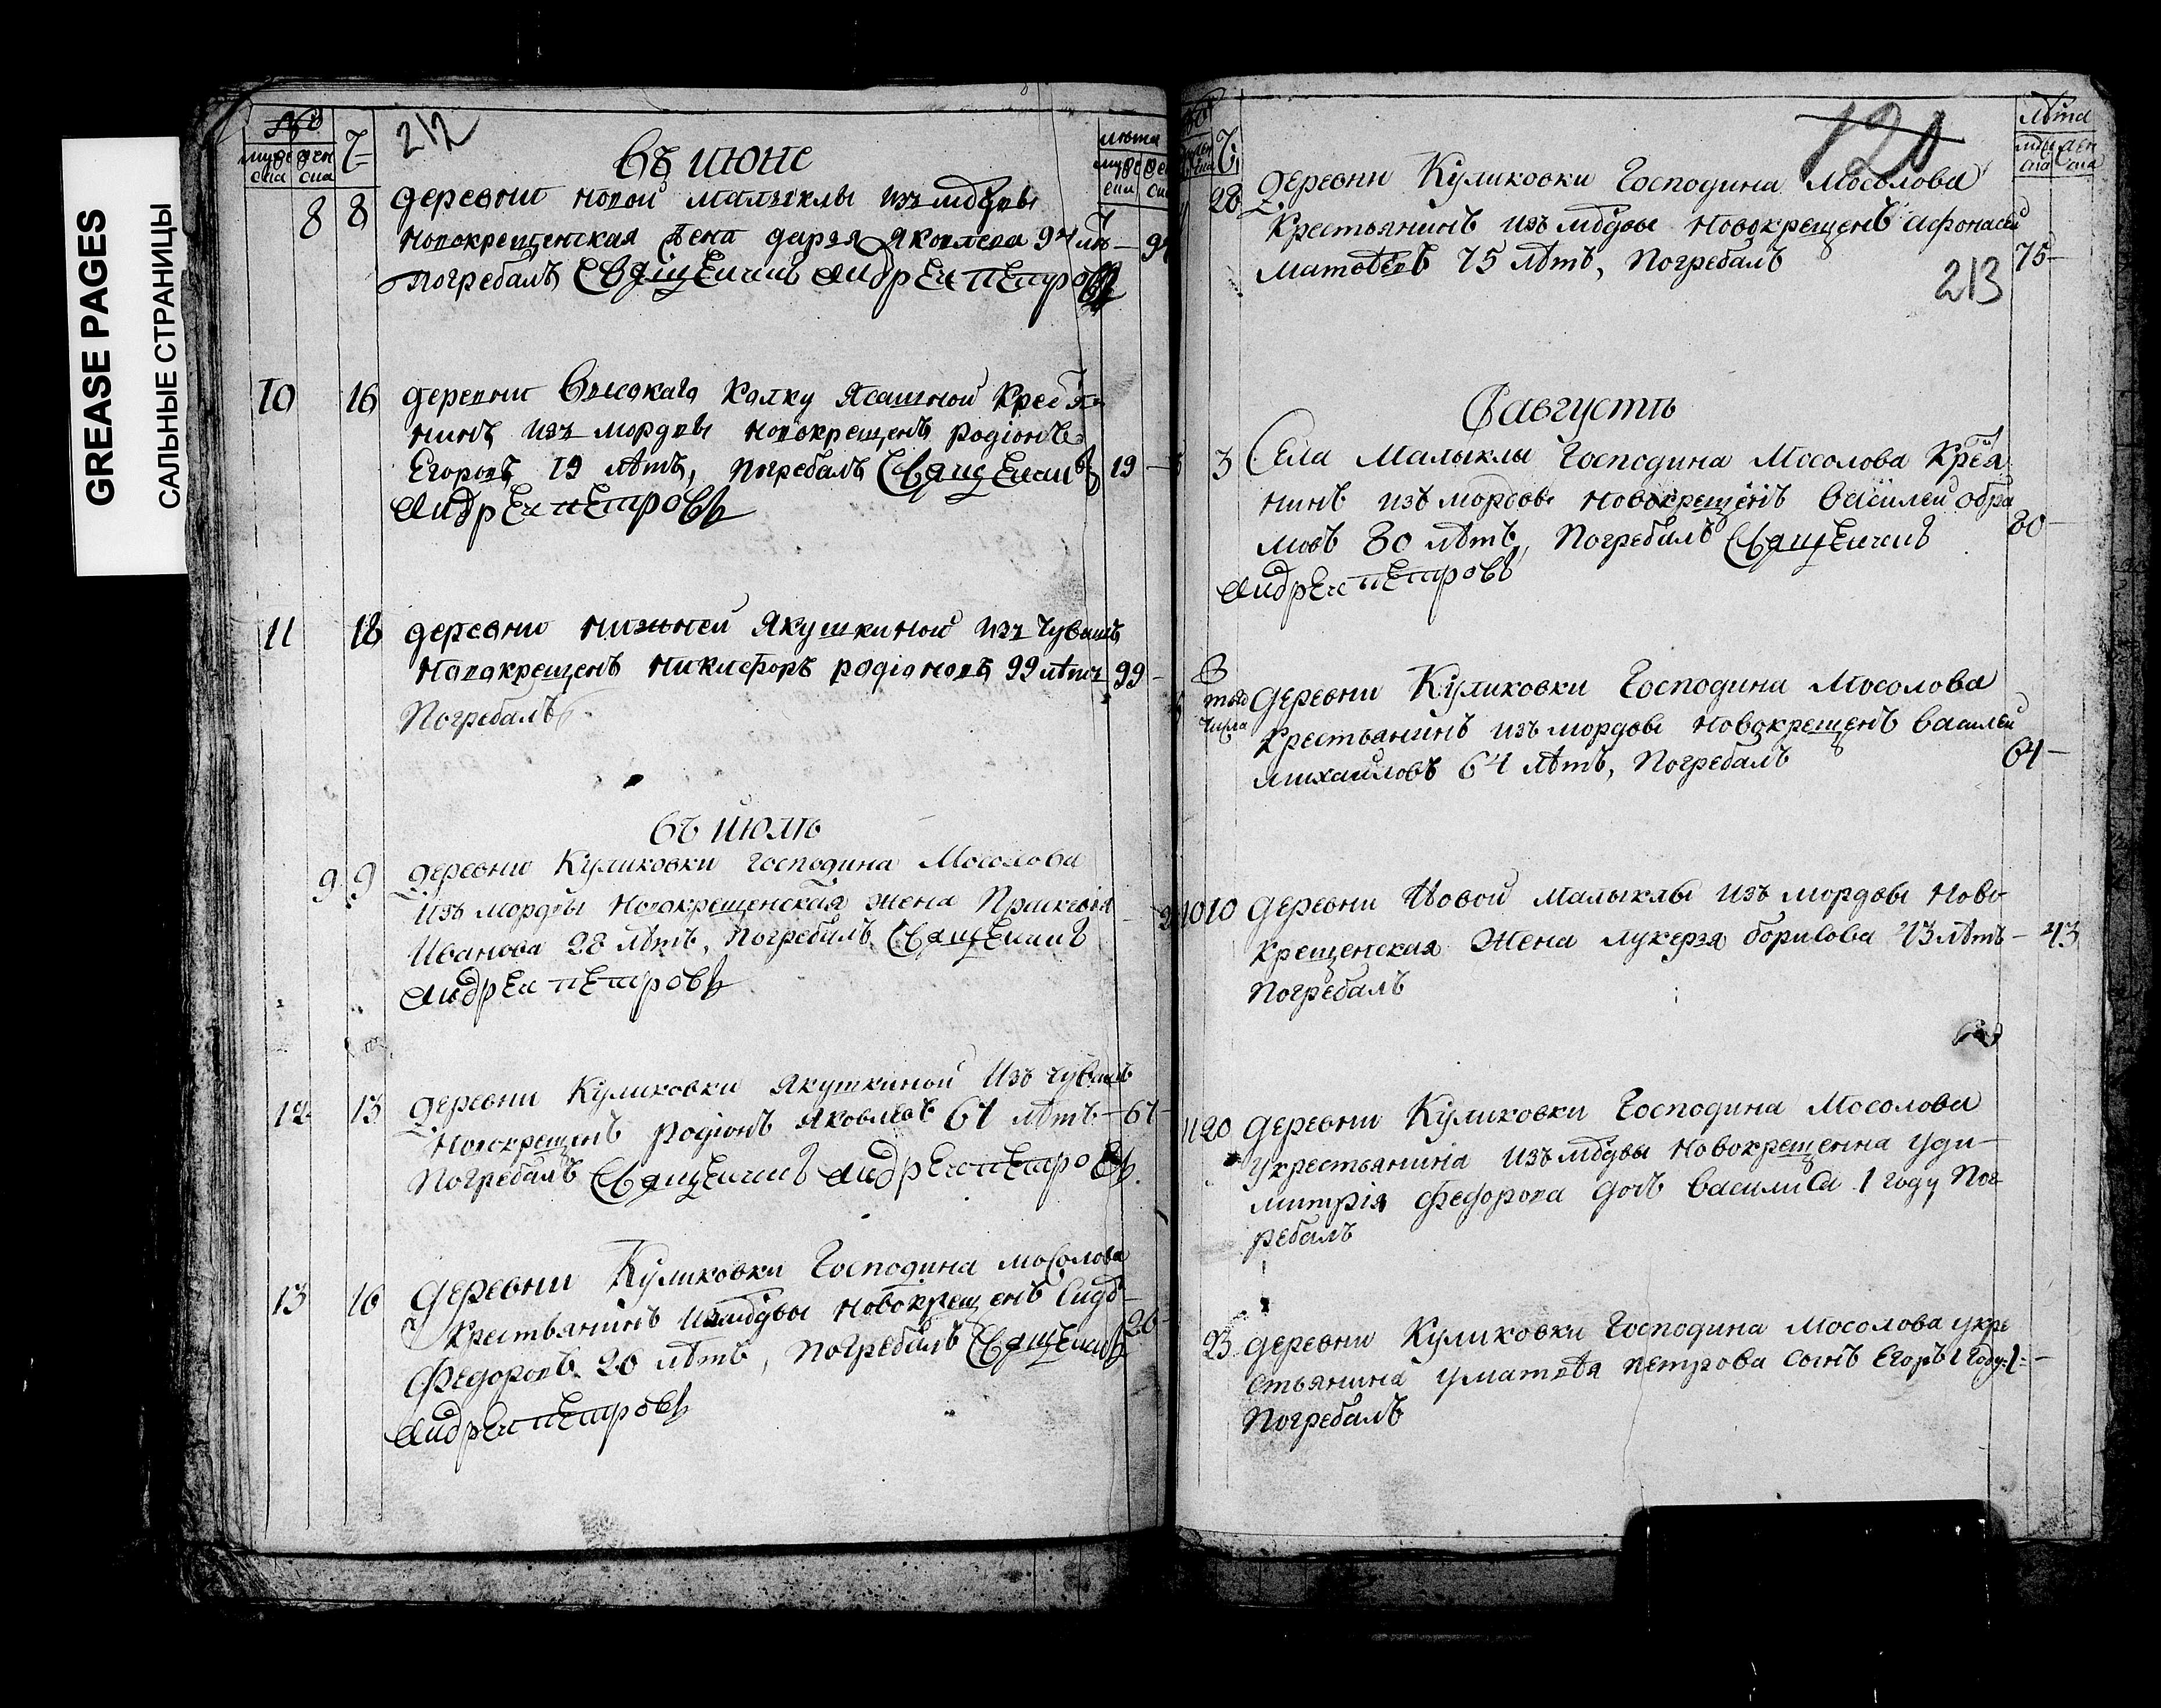 GREASE PAGES
САЛЬНЫЕ СТРАНИЦЫ
212
лѣта
Въ июне
8 8 деревни новой малыклы изъ мордвы
новокрещенская жена дарья Яковлева 94 лѣ 94
погребалъ Священникъ андреи петровъ
10 16 деревни Высокаго Колку Ясашной Крестья
нинъ изъ мордвы новокрещенъ родіонъ
Егоровъ 19 лѣтъ, погребалъ Священникъ 19
андреи петровъ
11 18 деревни нижней Якушкиной изъ Чувашъ
новокрещенъ никифоръ родіоновъ 99 лѣтъ 99
Погребалъ
въ июлѣ
9 9 деревни Куликовки господина Мосолова
изъ мордвы новокрещенская жена Прасковія
Иванова 28 лѣтъ, погребалъ Священникъ
андреи петровъ
12 13 деревни Куликовки якушкиной изъ чувашъ
новокрещенъ родіонъ яковлевъ 67 лѣтъ 67
погребалъ Священникъ андреи петровъ
13 16 деревни Куликовки Господина мосолова
крестьянинъ измордвы новокрещенъ Сидоръ
Федоровъ 26 лѣтъ, погребалъ Священникъ 26
андреи петровъ
120
лѣта
28 деревни Куликовки Господина Мосолова
Крестьянинъ изъ мордвы новокрещенъ афонасеи
матвѣевъ 75 лѣтъ, Погребалъ 75
213
Въ августѣ
3 Села Малыклы Господина Мосолова Крестья
нинъ изъ мордвы новокрещенъ василеи обра
мовъ 80 лѣтъ, Погребалъ Священникъ 80
андреи петровъ
того числа деревни Куликовки Господина Мосолова
крестьянинъ изъ мордвы новокрещенъ василеи
михаиловъ 64 лѣтъ, Погребалъ 64
10 10 деревни Новой Малыклы изъ мордвы Ново
крещенская Жена лукерья борисова 43 лѣтъ 43
Погребалъ
11 20 деревни Куликовки Господина Мосолова
укрестьянина изъ мордвы новокрещенна уди
митрія Федорова дочь василиса 1 году Пог
ребалъ
23 деревни Куликовки Господина Мосолова укре
стьянина уматвѣя петрова сынъ Егоръ 1 году 1
Погребалъ